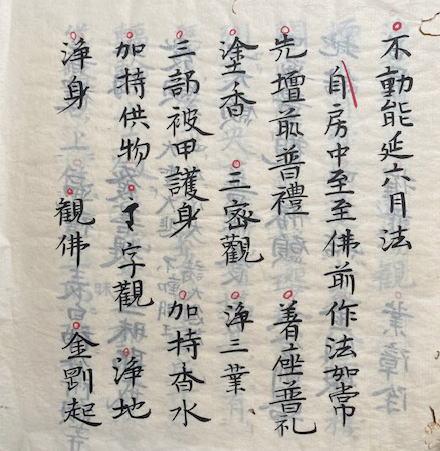 不動能延六月法
自房中至至佛前作法如常
先壇前普禮 着座普礼
塗香 三密觀 浄三業
三部被甲護身 加持香水
加持供物 字觀 浄地
浄身 観佛 金剛起